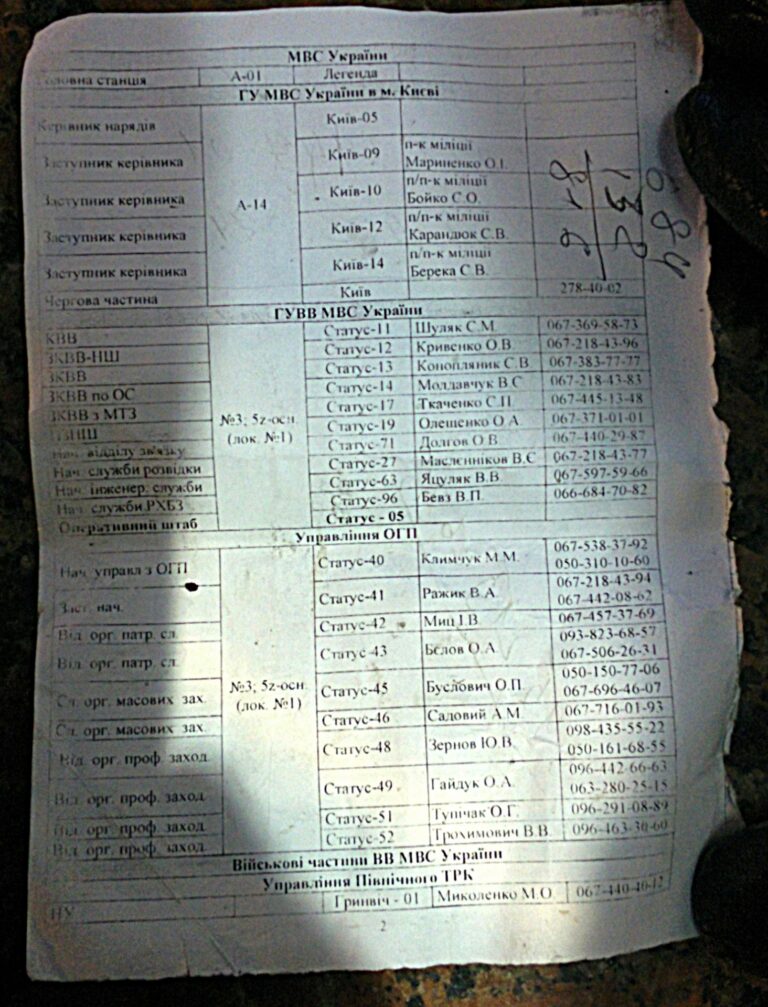 МВС України
Головна станція А-01 Легенда
ГУ МВС України в м. Києві
Керівник нарядів Київ-05
Заступник керівника Київ-09 п-к міліції Мариненко О.І.
Заступник керівника Київ-10 п/п-к міліції Бойко С.О.
А-14
Заступник керівника Київ-12 п/п-к міліції Карандюк С.В.
Заступник керівника Київ-14 п/п-к міліції Берека С.В.
Чергова частина Київ 278-40-02
684
132
816
ГУВВ МВС України
КВВ Статус-11 Шуляк С.М. 067-369-58-73
ЗКВВ-НШ Статус-12 Кривенко О.В. 067-218-43-96
ЗКВВ Статус-13 Конопляник С.В. 067-383-77-77
ЗКВВ по ОС Статус-14 Молдавчук В.С. 067-218-43-83
ЗКВВ з МТЗ Статус-17 Ткаченко С.П. 067-445-13-48
№3; 5z-осн. (лок. №1)
Статус-19 Олещенко О.А. 067-371-01-01
Нач. відділу зв'язку Статус-71 Долгов О.В. 067-440-29-87
Нач. служби розвідки Статус-27 Маслєнніков В.С. 067-218-43-77
Нач. інженер. служби Статус-63 Яцуляк В.В. 067-597-59-66
Нач. служби РХБЗ Статус-96 Бевз В.П. 066-684-70-82
Оперативний штаб Статус - 05
Управління ОГП
Нач. управл з ОГП Статус-40 Климчук М.М. 067-538-37-92 050-310-10-60
Заст. нач. Статус-41 Ражик В.А. 067-218-43-94 067-442-08-62
Від. орг. патр. сл. Статус-42 Миц І.В. 067-457-37-69
Від. орг. патр. сл. Статус-43 Бєлов О.А. 093-823-68-57 067-506-26-31
№3; 5z-осн. (лок. №1)
Сл. орг. масових зах. Статус-45 Буслович О.П. 050-150-77-06 067-696-46-07
Сл. орг. масових зах. Статус-46 Саловий А.М. 067-716-01-93
Від. орг. проф. заход. Статус-48 Зернов Ю.В. 098-435-55-22 050-161-68-55
Від. орг. проф. заход. Статус-49 Гайдук О.А. 096-442-66-63 063-280-25-15
Від. орг. проф. заход. Статус-51 Тупчак О.Г. 096-291-08-89
Від. орг. проф. заход. Статус-52 Трохимович В.В. 096-463-30-60
Військові частини ВВ МВС України
Управління Північного ТРК
НУ Гринвіч - 01 Миколенко М.О. 067-440-40-12
2